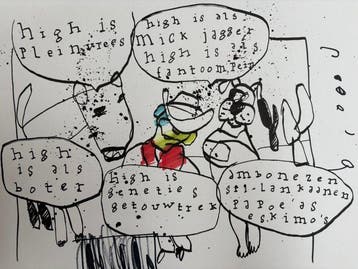 high is
pleinvrees
high is als
mick jagger
high is als
fantoompein
high
is als
boter
high is
genetics
getouwtrek
ambonezen
sri-lankaanen
papoe'as
eskimo's